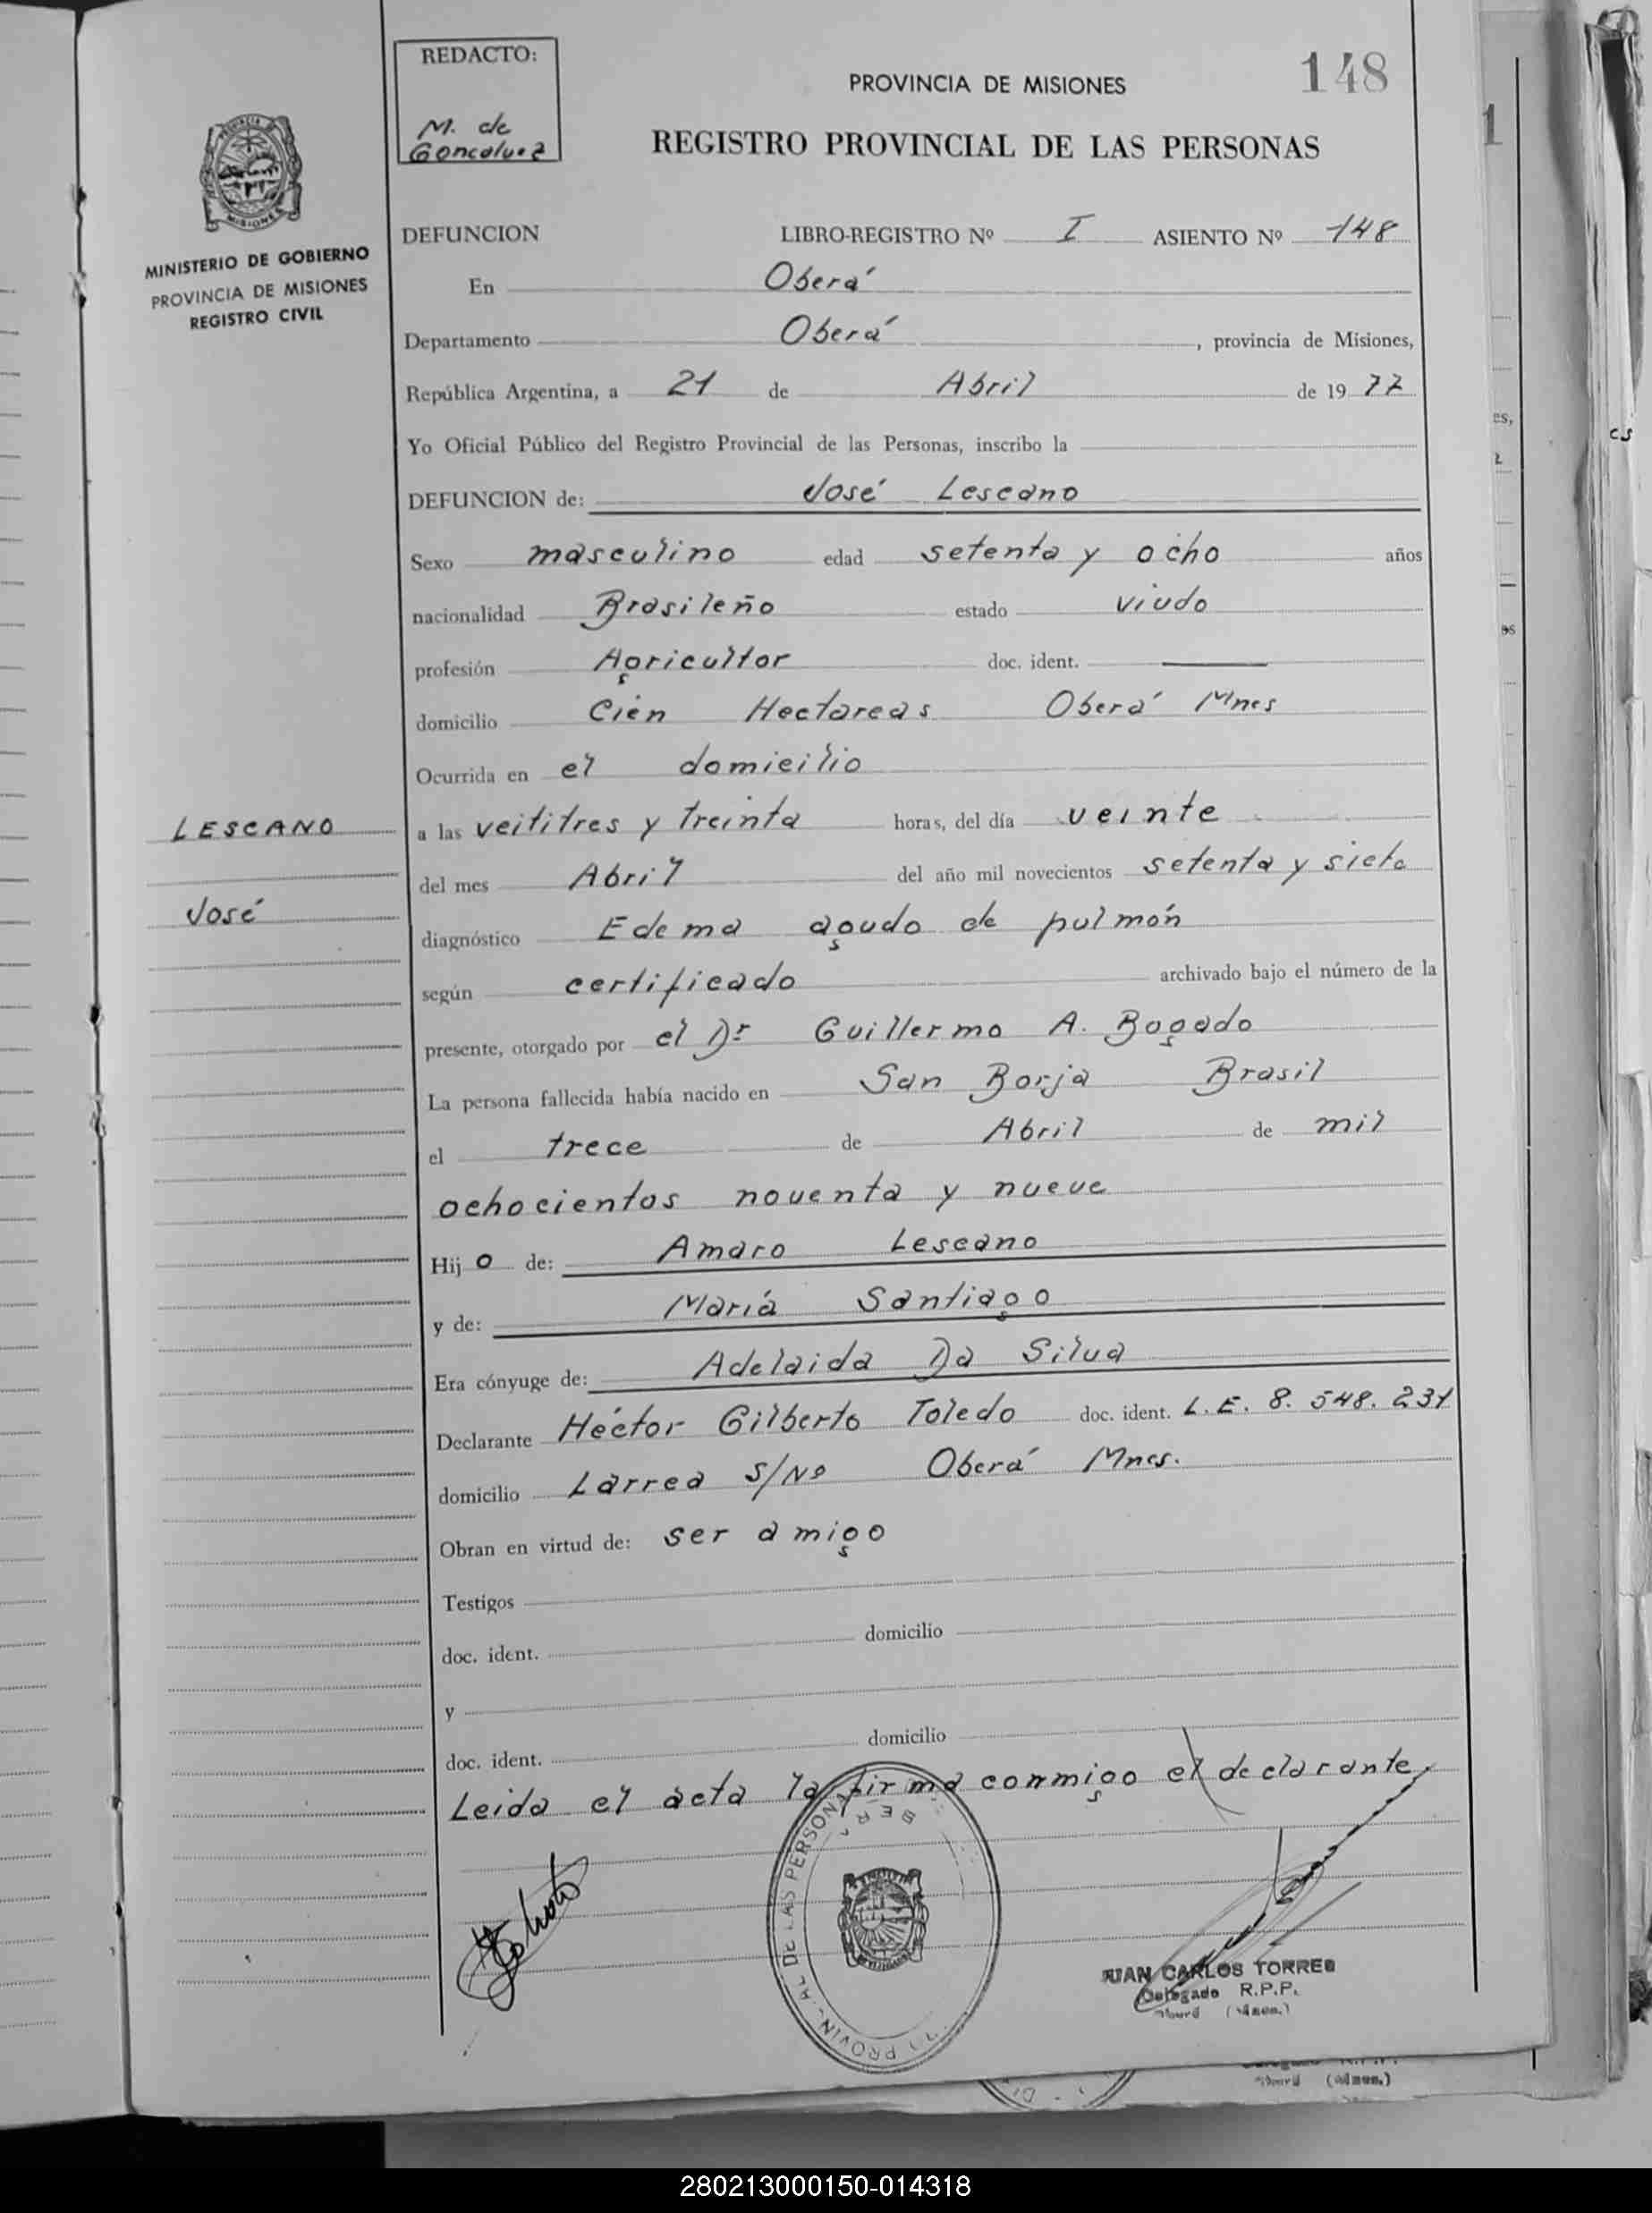 REDACTO:
M. de
Goncalvez
PROVINCIA DE MISIONES
148
REGISTRO PROVINCIAL DE LAS PERSONAS
MINISTERIO DE GOBIERNO
PROVINCIA DE MISIONES
REGISTRO CIVIL
DEFUNCION LIBRO-REGISTRO Nº I ASIENTO Nº 148
En Oberá
Departamento Oberá, provincia de Misiones,
República Argentina, a 21 de Abril de 1977
Yo Oficial Público del Registro Provincial de las Personas, inscribo la
DEFUNCION de: José Lescano
Sexo masculino edad setenta y ocho años
nacionalidad Brasileño estado viudo
profesión Agricultor doc. ident.
domicilio Cien Hectareas Oberá Mnes
Ocurrida en el domicilio
LESCANO
José
a las veititres y treinta horas, del día veinte
del mes Abril del año mil novecientos setenta y siete
diagnóstico Edema agudo de pulmón
según certificado archivado bajo el número de la
presente, otorgado por el Dr Guillermo A. Bogado
La persona fallecida había nacido en San Borja Brasil
el trece de Abril de mil
ochocientos noventa y nueve
Hijo de: Amaro Lescano
y de: María Santiago
Era cónyuge de: Adelaida Da Silva
Declarante Héctor Gilberto Toledo doc. ident. L.E. 8.548.231
domicilio Larrea S/Nº Oberá Mnes.
Obran en virtud de: ser amigo
Testigos
doc. ident. domicilio
y
doc. ident. domicilio
Leida el acta la firma conmigo el declarante
JUAN CARLOS TORRES
Delegado R.P.P.
280213000150-014318